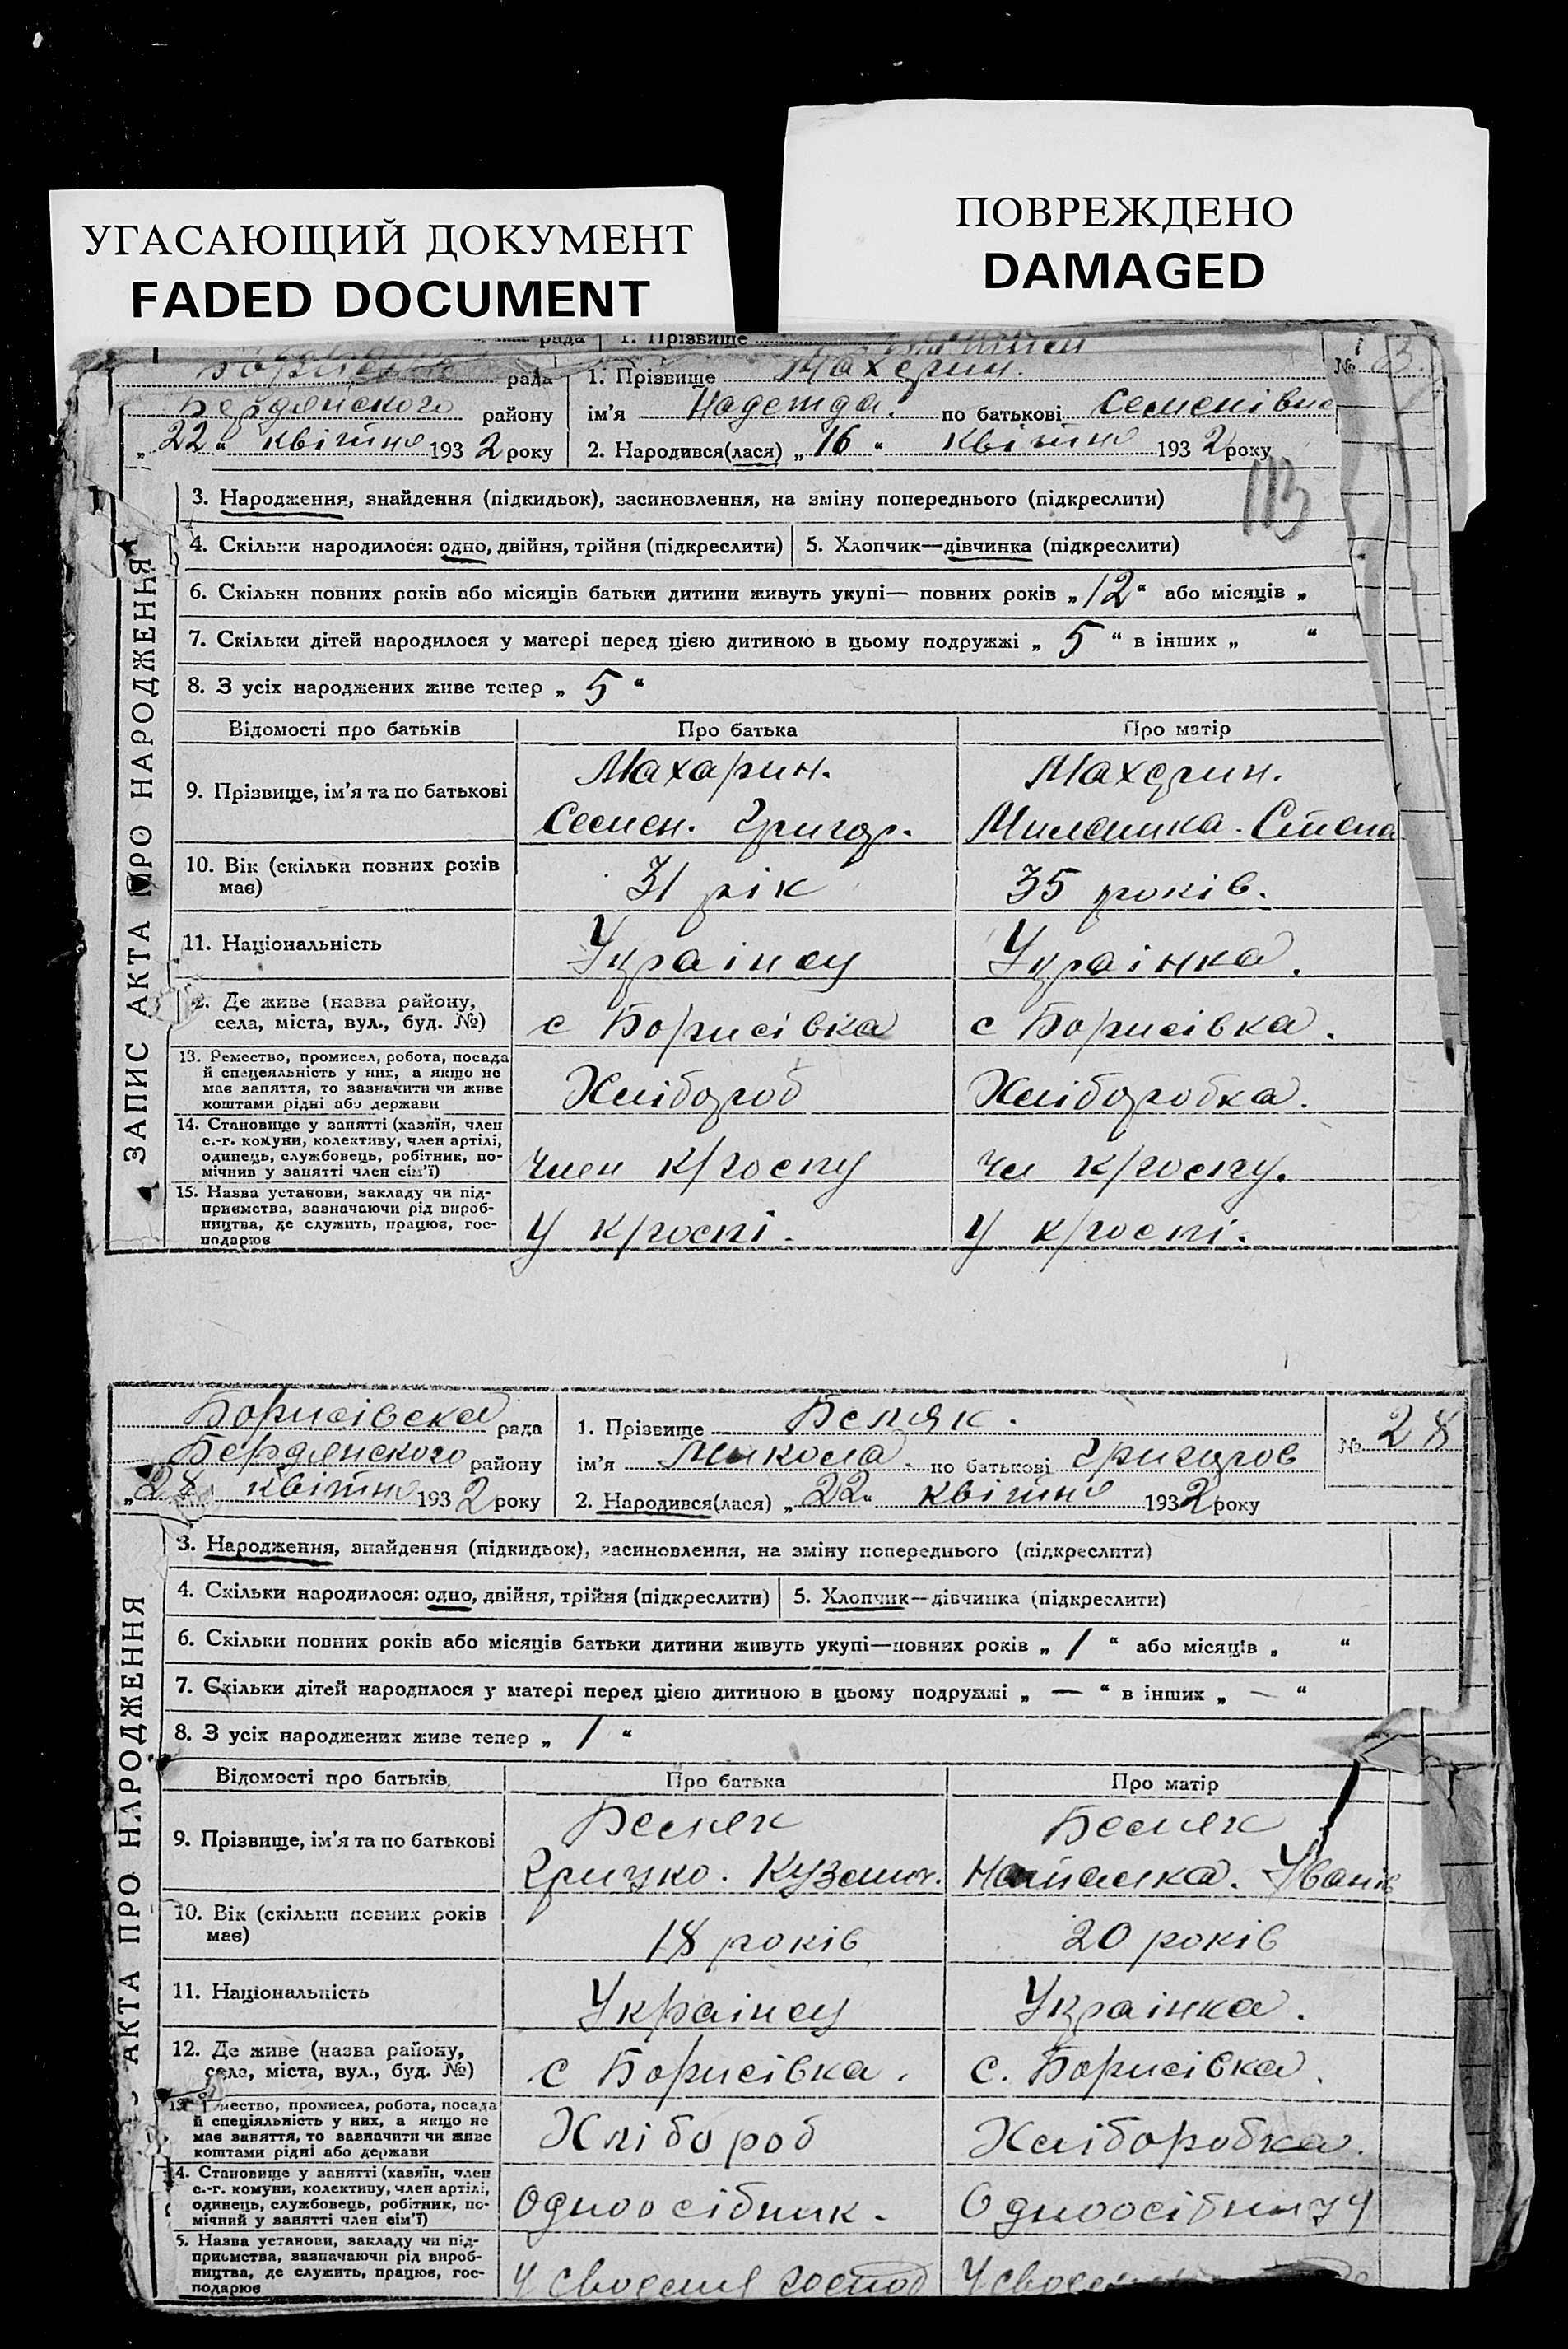 УГАСАЮЩИЙ ДОКУМЕНТ
FADED DOCUMENT
ПОВРЕЖДЕНО
DAMAGED
рада 1. Прізвище
рада 1. Прізвище Махерин. №
Бердянского району ім'я Надежда. по батькові Семенівна
„22“ квітня 1932 року 2. Народився(лася) „16“ квітня 1932 року
113
3. Народження, знайдення (підкидьок), засиновлення, на зміну попереднього (підкреслити)
4. Скільки народилося: одно, двійня, трійня (підкреслити) 5. Хлопчик—дівчинка (підкреслити)
6. Скільки повних років або місяців батьки дитини живуть укупі— повних років „12“ або місяців „
7. Скільки дітей народилося у матері перед цією дитиною в цьому подружжі „5“ в інших „ “
8. З усіх народжених живе тепер „5“
ЗАПИС АКТА ПРО НАРОДЖЕННЯ
Відомості про батьків Про батька Про матір
9. Прізвище, ім'я та по батькові Махарин. Махерин.
Семен. Григор. Степа
10. Вік (скільки повних років має) 31 рік 35 років.
11. Національність Українец Українка.
12. Де живе (назва району, села, міста, вул., буд. №) с Борисівка с Борисівка.
13. Ремество, промисел, робота, посада
й спецеяльність у них, а якщо не
має заняття, то зазначити чи живе
коштами рідні або держави
Хлібороб Хліборобка.
14. Становище у занятті (хазяїн, член
с.-г. комуни, колективу, член артілі,
одинець, службовець, робітник, по-
мічнив у занятті член сім'ї)
член к/госпу чл к/госпу.
15. Назва установи, закладу чи під-
приємства, зазначаючи рід вироб-
ництва, де служить, працює, гос-
подарює
у к/госпі. у к/госпі.
Борисівска рада 1. Прізвище Беляк. № 28
Бердянского району ім'я Микола. по батькові Григоров
„28“ квітня 1932 року 2. Народився(лася) „22“ квітня 1932 року
3. Народження, знайдення (підкидьок), засиновлення, на зміну попереднього (підкреслити)
4. Скільки народилося: одно, двійня, трійня (підкреслити) 5. Хлопчик—дівчинка (підкреслити)
6. Скільки повних років або місяців батьки дитини живуть укупі—повних років „1“ або місяців „ “
7. Скільки дітей народилося у матері перед цією дитиною в цьому подружжі „—“ в інших „—“
8. З усіх народжених живе тепер „1“
АКТА ПРО НАРОДЖЕННЯ
Відомості про батьків Про батька Про матір
9. Прізвище, ім'я та по батькові Беляк Беляк
Грицко. Кузмич. Наталка. Іванів
10. Вік (скільки повних років має) 18 років 20 років
11. Національність Українец Українка.
12. Де живе (назва району, села, міста, вул., буд. №) с Борисівка. с. Борисівка.
мество, промисел, робота, посада
й спеціяльність у них, а якщо не
має заняття, то зазначити чи живе
коштами рідні або держави
Хлібороб Хліборобка.
4. Становище у занятті (хазяїн, член
с.-г. комуни, колективу, член артілі,
одинець, службовець, робітник, по-
мічний у занятті член сім'ї)
Одноосібник.
5. Назва установи, закладу чи під-
приємства, зазначаючи рід вироб-
ництва, де служить, працює, гос-
подарює
У своєму господ У